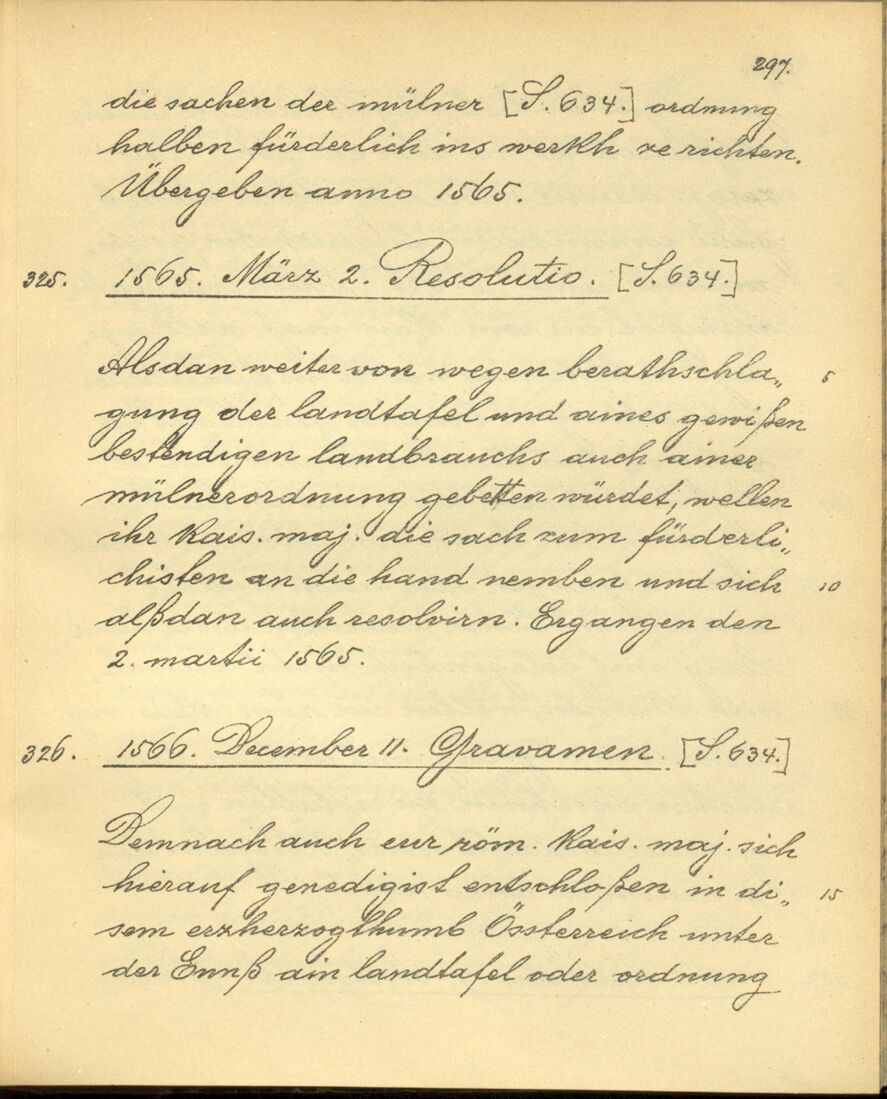 297.
die sachen der mülner [S. 634.] ordnung
halben fürderlich ins werkh ze richten.
Übergeben anno 1565.
325. 1565. März 2. Resolutio. [S. 634.]
Alsdan weiter von wegen berathschla„ 5
gung der landtafel und aines gewißen
bestendigen landbrauchs auch ainer
mülnerordnung gebetten würdet, wellen
ihr kais. maj. die sach zum fürderli„
chisten an die hand nemben und sich 10
alßdan auch resolvirn. Ergangen den
2. martii 1565.
326. 1566. December 11. Gravamen. [S. 634.]
Demnach auch eur röm. kais. maj. sich
hierauf genedigist entschloßen in di„ 15
sem erzherzogthumb Össterreich unter
der Ennß ain landtafel oder ordnung